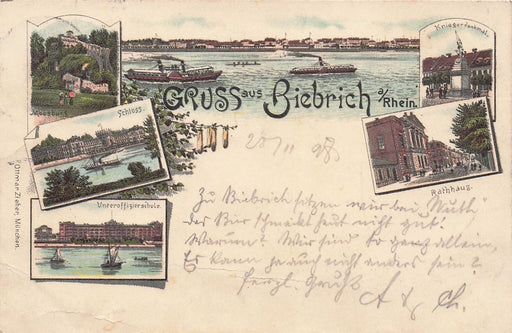 Kriegerdenkmal.
GRUSS aus Biebrich a/Rhein.
Schloss.
Rathhaus.
Unteroffizierschule.
Ottmar Zieher, München.
98
Zu Biebrich sitzen wir bei "Mutti"
der Bier schmeckt heut nicht gut!
Warum? Wir sind so ganz allein,
Es kann ja auch nicht anders sein!
herzl. Gruß
A & Ch.